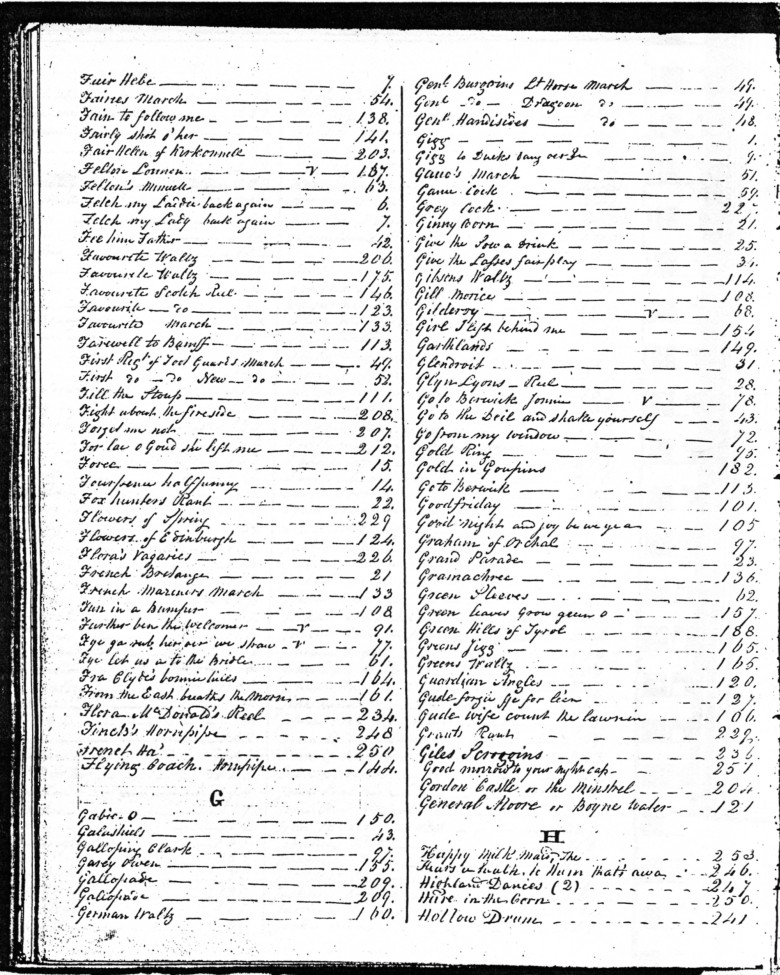 Fair Hebe 7.
Fairies March 54.
Fain to follow me 138.
Fairly shot o' her 141.
Fair Helen of Kirkonnell 203.
Felton Lonnen V 137.
Felton's Minuett 63.
Fetch my Laddie back again 6.
Fetch my Lady back again 7.
Fee him Father 42.
Favourite Waltz 206.
Favourite Waltz 175.
Favourite Scotch Reel 146.
Favourite do 123.
Favourite March 133.
Farewell to Bamff 113.
First Regt of Foot Guards March 49.
First do do New do 52.
Fill the Stoup 111.
Fight about the fireside 208.
Forget me not 207.
For lac o Goud she left me 212.
Foree 15.
Fourpence halfpenny 14.
Fox hunters Rant 22.
Flowers of Spring 229
Flowers of Edinburgh 124.
Flora's Vagaries 226.
French Bretange 21
French Mariners March 133
Fun in a Bumper 108
Further ben the welcomer V 91.
Fye ga rub her oer we straw V 77.
Fye let us a to the Bridle 61.
Fra Clyde's bonnie hills 164.
From the East breaks the Morn 161.
Flora McDonald's Reel 234.
Finch's Hornpipe 248
Frenet Ha' 250
Flying Coach. Hornpipe 144.
G
Gabie-O 150.
Galashiels 43.
Galloping Clark 97.
Garey Owen 155.
Gallopade 209.
Gallopade 209.
German Waltz 160.
Genl Burgoins Lt Horse March 49.
Genl do Dragoon do 49.
Genl Handisides do 48.
Gigg 1.
Gigg to Ducks dang oer 9.
Gaue's March 51.
Game Cock 59.
Grey Cock 22
Ginny Born 21.
Give the Sow a Drink 25.
Give the Lasses fair play 31.
Gibsons Waltz 114.
Gill Morice 108.
Gilderoy V 68.
Girl I left behind me 154
Garthlands 149.
Glendroit 31
Glyn Lyons Reel 28.
Go to Berwick Jonnie V 78.
Go to the Deil and shake yourself 43.
Go from my window 72.
Gold Ring 95.
Gold in Goupins 182.
Go to Berwick 113.
Goodfriday 101.
Good night and joy be we ye a 105
Graham of Orchal 97.
Grand Parade 23.
Gramachree 136.
Green Sleeves 62.
Green leaves Grow green o 157.
Green Hills of Tyrol 188.
Greens Jigg 165.
Greens Waltz 165.
Guardian Angles 120.
Gude forgie ye for lien 127.
Gude wife count the lawnin 106.
Grants Rant 239.
Giles Scroggins 236
Good morrow to your night cap 251
Gordon Castle or the Minstrel 204
General Moore or Boyne Water 121
H
Happy Milk Maid, The 253.
Hum that's awa 246.
Highland Dances (2) 247
in the Corn 250.
Hollow Drum 241